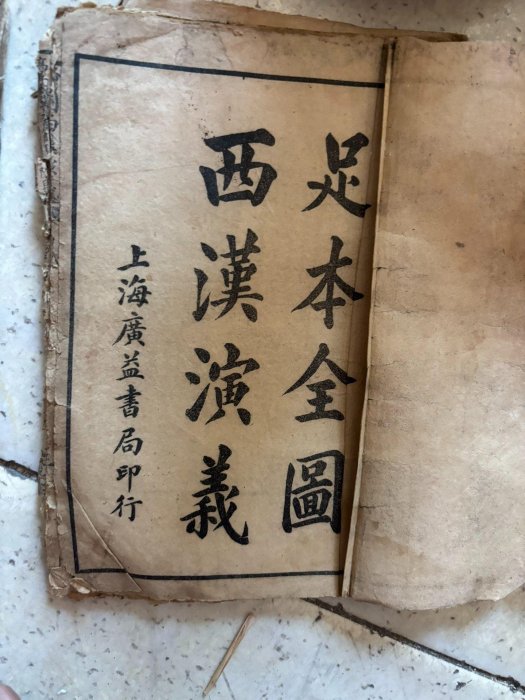 足本全圖
西漢演義
上海廣益書局印行